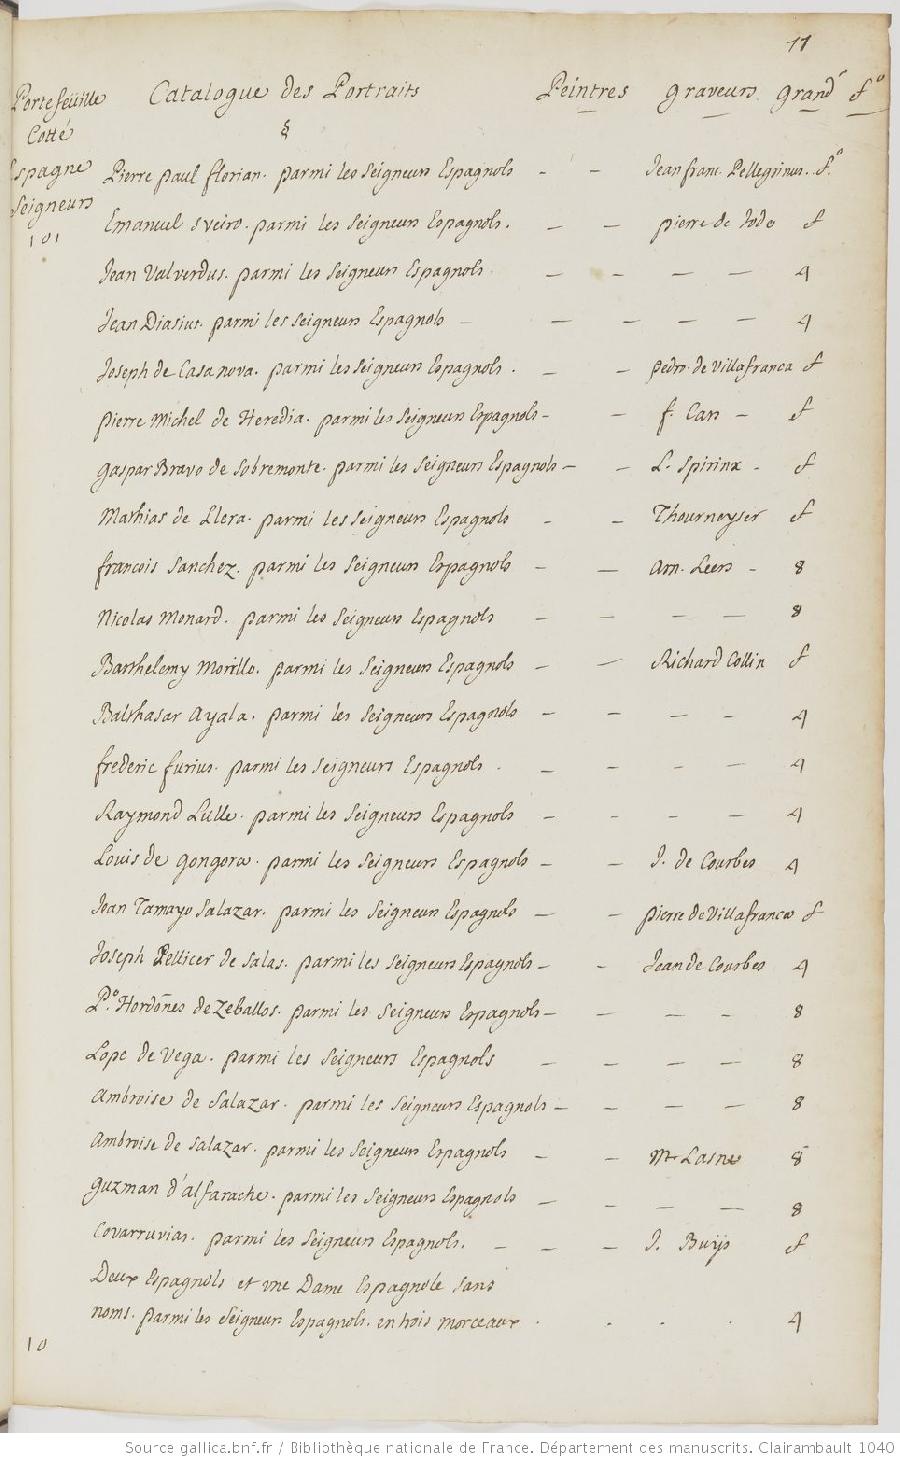 11
Portefeüille Catalogue des Portraits Peintres graveurs grand.r f.o
Cotté
§
Espagne
Seigneurs
101
Pierre paul florian. parmi les Seigneurs Espagnols - - Jean franc. Pellegrinus. f.o
Emanuel Sveiro. parmi les Seigneurs Espagnols. - - pierre de Jode f
Jean Valverdus. parmi les Seigneurs Espagnols - - - - 4
Jean Diasius. parmi les Seigneurs Espagnols - - - - 4
Joseph de Casanova. parmi les Seigneurs Espagnols. - - pedro de Villafranca f
pierre Michel de Heredia. parmi les Seigneurs Espagnols - - f. Can - f
gaspar Bravo de Sobremonte. parmi les Seigneurs Espagnols - - L. Spirinx - f
Mathias de Llera. parmi les Seigneurs Espagnols - - Thourneyser f
francois Sanchez. parmi les Seigneurs Espagnols - - Arn. Leers - 8
Nicolas Monard. parmi les Seigneurs Espagnols - - - - 8
Barthelemy Morillo. parmi les Seigneurs Espagnols - - Richard Collin f
Balthasar Ayala. parmi les Seigneurs Espagnols - - - - 4
frederic furius. parmi les Seigneurs Espagnols. - - - - 4
Raymond Lulle. parmi les Seigneurs Espagnols - - - - 4
Louis de gongora. parmi les Seigneurs Espagnols - - J. de Courbes 4
Jean Tamayo Salazar. parmi les Seigneurs Espagnols - - pierre de Villafranca f
Joseph Pellicer de Salas. parmi les Seigneurs Espagnols - - Jean de Courbes 4
P.o Hordoñes de Zeballos. parmi les Seigneurs Espagnols - - - - 8
Lope de Vega. parmi les Seigneurs Espagnols - - - - 8
Ambroise de Salazar. parmi les Seigneurs Espagnols - - - - 8
Ambroise de Salazar. parmi les Seigneurs Espagnols - - M. Lasne 8
guzman d'alfarache. parmi les Seigneurs Espagnols - - - - 8
Covarruvias. parmi les Seigneurs Espagnols. - - - J. Buijs f
Deux Espagnols et une Dame Espagnole sans
noms. parmi les Seigneurs Espagnols. en trois morceaux . . . . 4
10
Source gallica.bnf.fr / Bibliothèque nationale de France. Département des manuscrits. Clairambault 1040